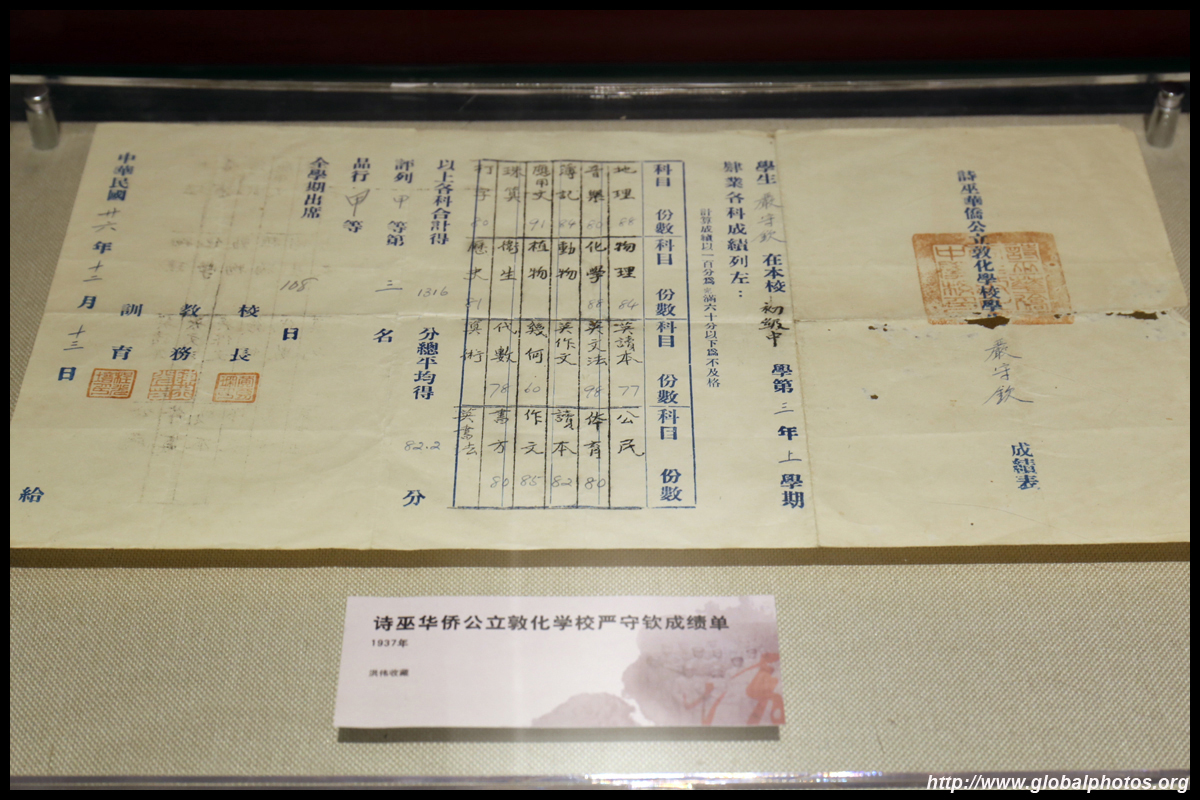 詩巫華僑公立敦化學校學
嚴守欽
成績表
學生 嚴守欽 在本校 初級中 學第 三 年 上 學期
肄業各科成績列左：
計算成績以一百分為滿六十分以下為不及格
科目 份數 科目 份數 科目 份數 科目 份數
地理 88 物理 84 英讀本 77 公民
音樂 80 化學 88 英文法 98 體育 80
簿記 89 動物 英作文 讀本 82
應用文 91 植物 幾何 60 作文 85
珠算 衛生 代數 78 書方 80
打字 80 歷史 81 算術 英書法
以上各科合計得 1316 分總平均得 82.2 分
評列 甲 等第 三 名
品行 甲 等
全學期出席 108 日
校長
教務
訓育
中華民國 廿六 年 十二 月 十三 日
給
诗巫华侨公立敦化学校严守钦成绩单
1937年
洪祎收藏
http://www.globalphotos.org